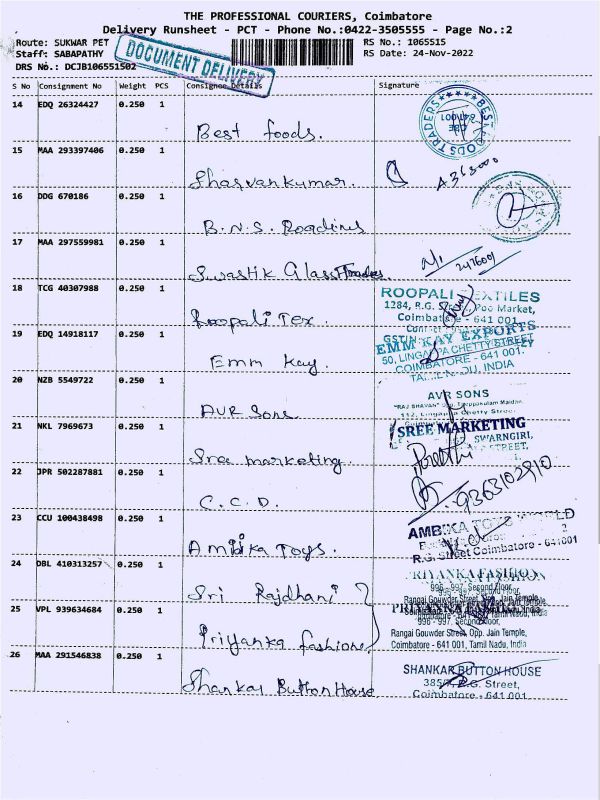 THE PROFESSIONAL COURIERS, Coimbatore
Delivery Runsheet - PCT - Phone No.:0422-3505555 - Page No.:2
Route: SUKWAR PET
RS No.: 1065515
Staff: SABAPATHY
RS Date: 24-Nov-2022
DRS No.: DCJB106551502
DOCUMENT DELIVERY
S No Consignment No Weight PCS Consignee Details Signature
14 EDQ 26324427 0.250 1
Best foods.
BEST FOODS TRADERS
15 MAA 293397406 0.250 1
Sharvankumar.
16 DDG 670186 0.250 1
B.N.S.
17 MAA 297559981 0.250 1
Swastik Glass Traders
18 TCG 40307988 0.250 1
Roopali Tex.
ROOPALI TEXTILES
1284, R.G. Poo Market,
Coimbatore - 641 001
19 EDQ 14918117 0.250 1
Emm Kay.
GSTIN
EMM KAY EXPORTS
50, LINGAPPA CHETTY STREET
COIMBATORE - 641 001.
INDIA
20 NZB 5549722 0.250 1
AVR Sons.
AVR SONS
"RAJ BHAVAN"
112, Lingappa Chetty Street
21 NKL 7969673 0.250 1
Sree marketing.
SREE MARKETING
SWARNGIRI,
STREET,
22 JPR 502287881 0.250 1
C.C.D.
9363102910
23 CCU 100438498 0.250 1
Ambika Toys.
AMBIKA TOYS WORLD
R.G. Street Coimbatore - 641001
24 DBL 410313257 0.250 1
Sri Rajdhani
PRIYANKA FASHION
996 - 997, Second Floor,
Rangai Gouwder Street, Opp. Jain Temple,
25 VPL 939634684 0.250 1
Priyanka fashions
PRIYANKA FASHION
996 - 997, Second Floor,
Rangai Gouwder Street, Opp. Jain Temple,
Coimbatore - 641 001, Tamil Nadu, India
26 MAA 291546838 0.250 1
Shankar Button House
SHANKAR BUTTON HOUSE
385/ R.G. Street,
Coimbatore - 641 001.